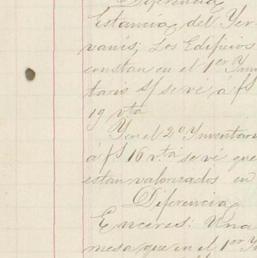 Diferencia
Estancia del Yer
vanis; Los Edificios
constan en el 1er Inven
tario s/ se vé, á fs
19 vta
Y en el 2º Inventari
á fs 16 vta se vé que
estan valorizados en
Diferencia
Enceres: Una
mesa que en el 1er I